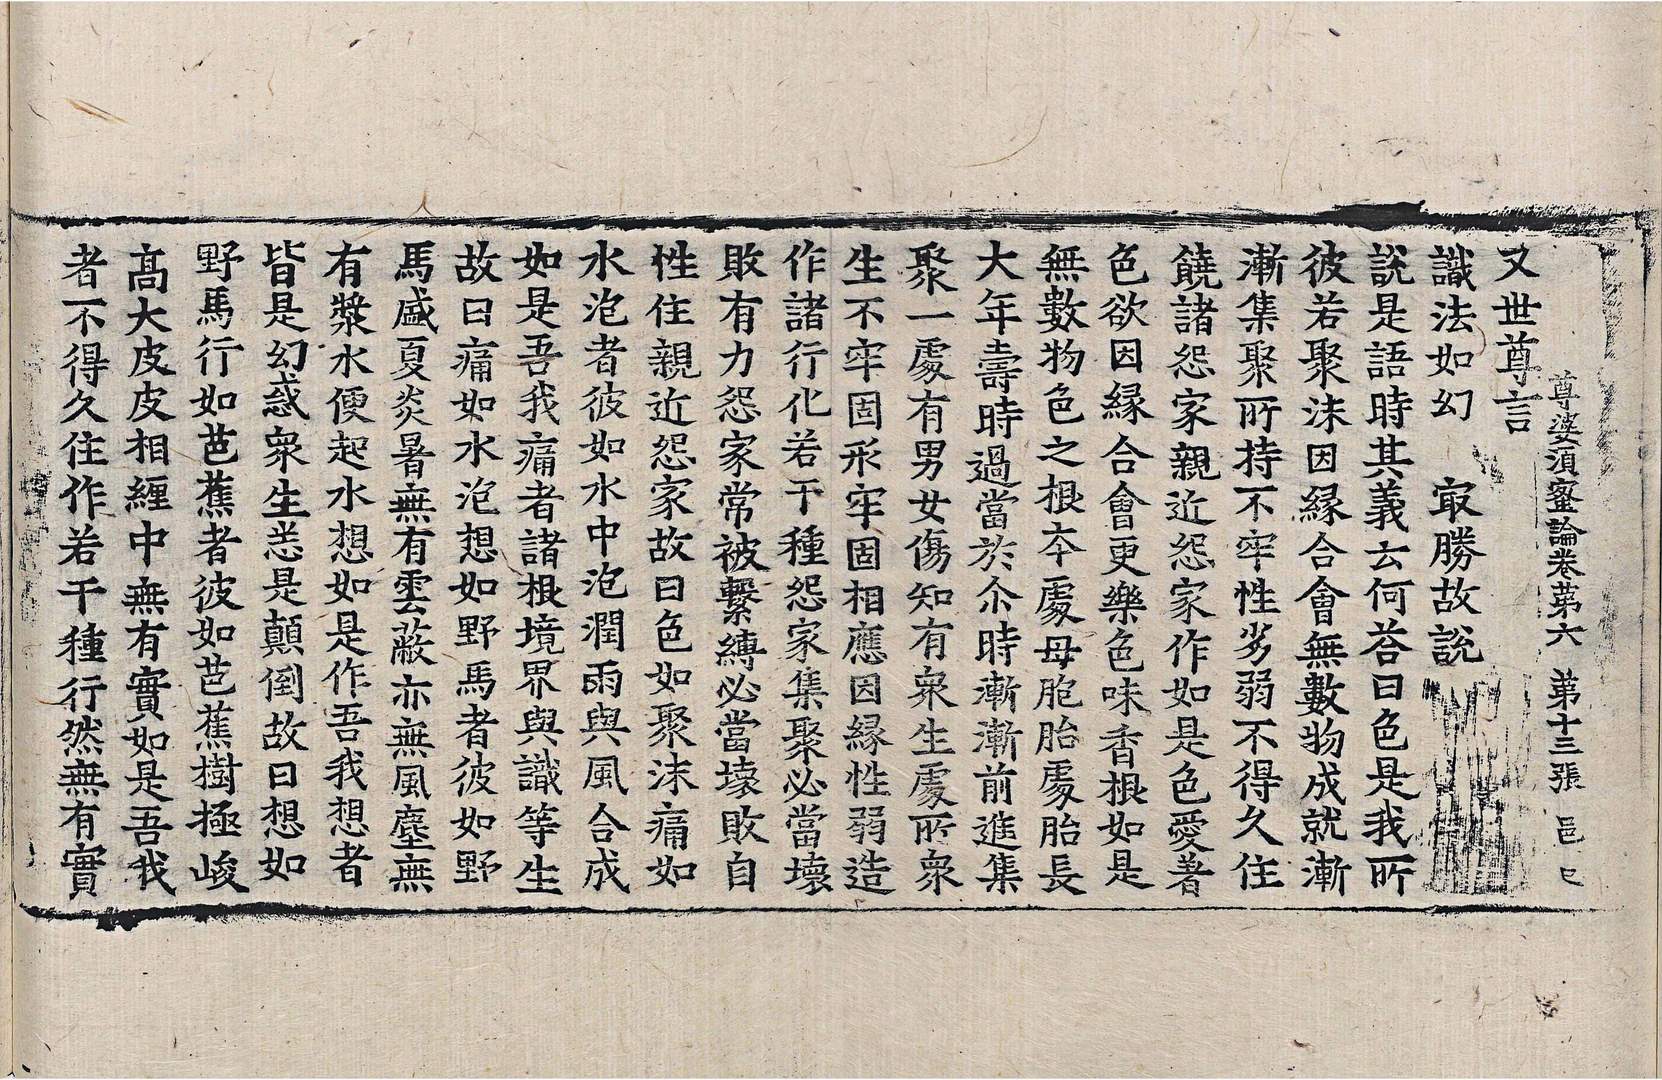 尊婆須蜜論卷第六 第十三張 邑 七
又世尊言
識法如幻 㝡勝故說
說是語時其義云何荅曰色是我所
彼若聚沫因緣合會無數物成就漸
漸集聚所持不牢性劣弱不得久住
饒諸怨家親近怨家作如是色愛著
色欲因緣合會更樂色味香根如是
無數物色之根夲處母胞胎處胎長
大年壽時過當於尒時漸漸前進集
聚一處有男女傷知有衆生處所衆
生不牢固形牢固相應因緣性弱造
作諸行化若干種怨家集聚必當壞
敗有力怨家常被繫縛必當壞敗自
性住親近怨家故曰色如聚沫痛如
水泡者彼如水中泡潤雨與風合成
如是吾我痛者諸根境界與識等生
故曰痛如水泡想如野馬者彼如野
馬盛夏炎暑無有雲蔽亦無風塵無
有漿水便起水想如是作吾我想者
皆是幻惑衆生恙是顛倒故曰想如
野馬行如芭蕉者彼如芭蕉樹極峻
髙大皮皮相纏中無有實如是吾我
者不得久住作若干種行然無有實